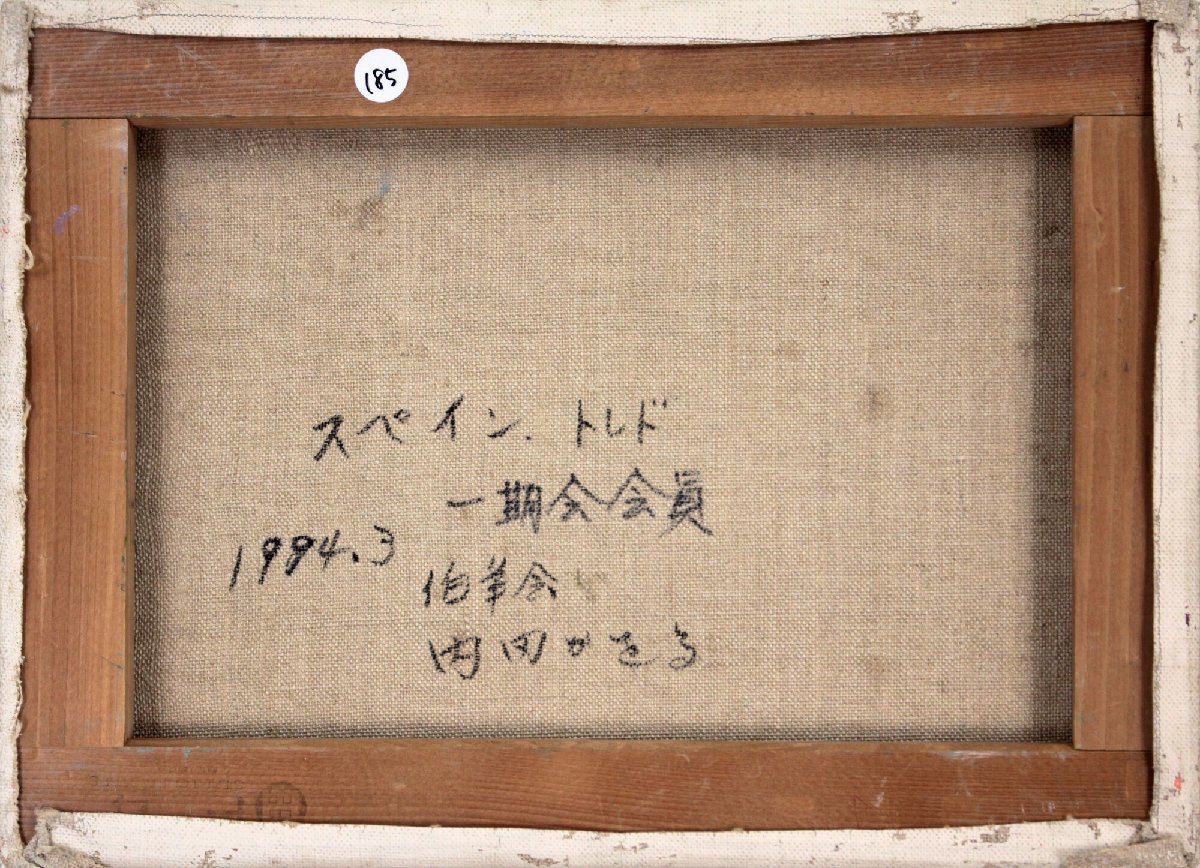 185
スペイン.トレド
一期会会員
1994.3
伯羊会
内田かをる